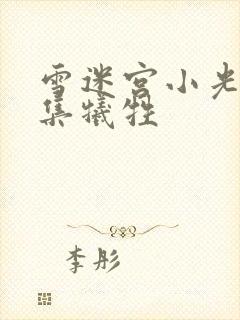 雪迷宫小光
集牺牲
李彤